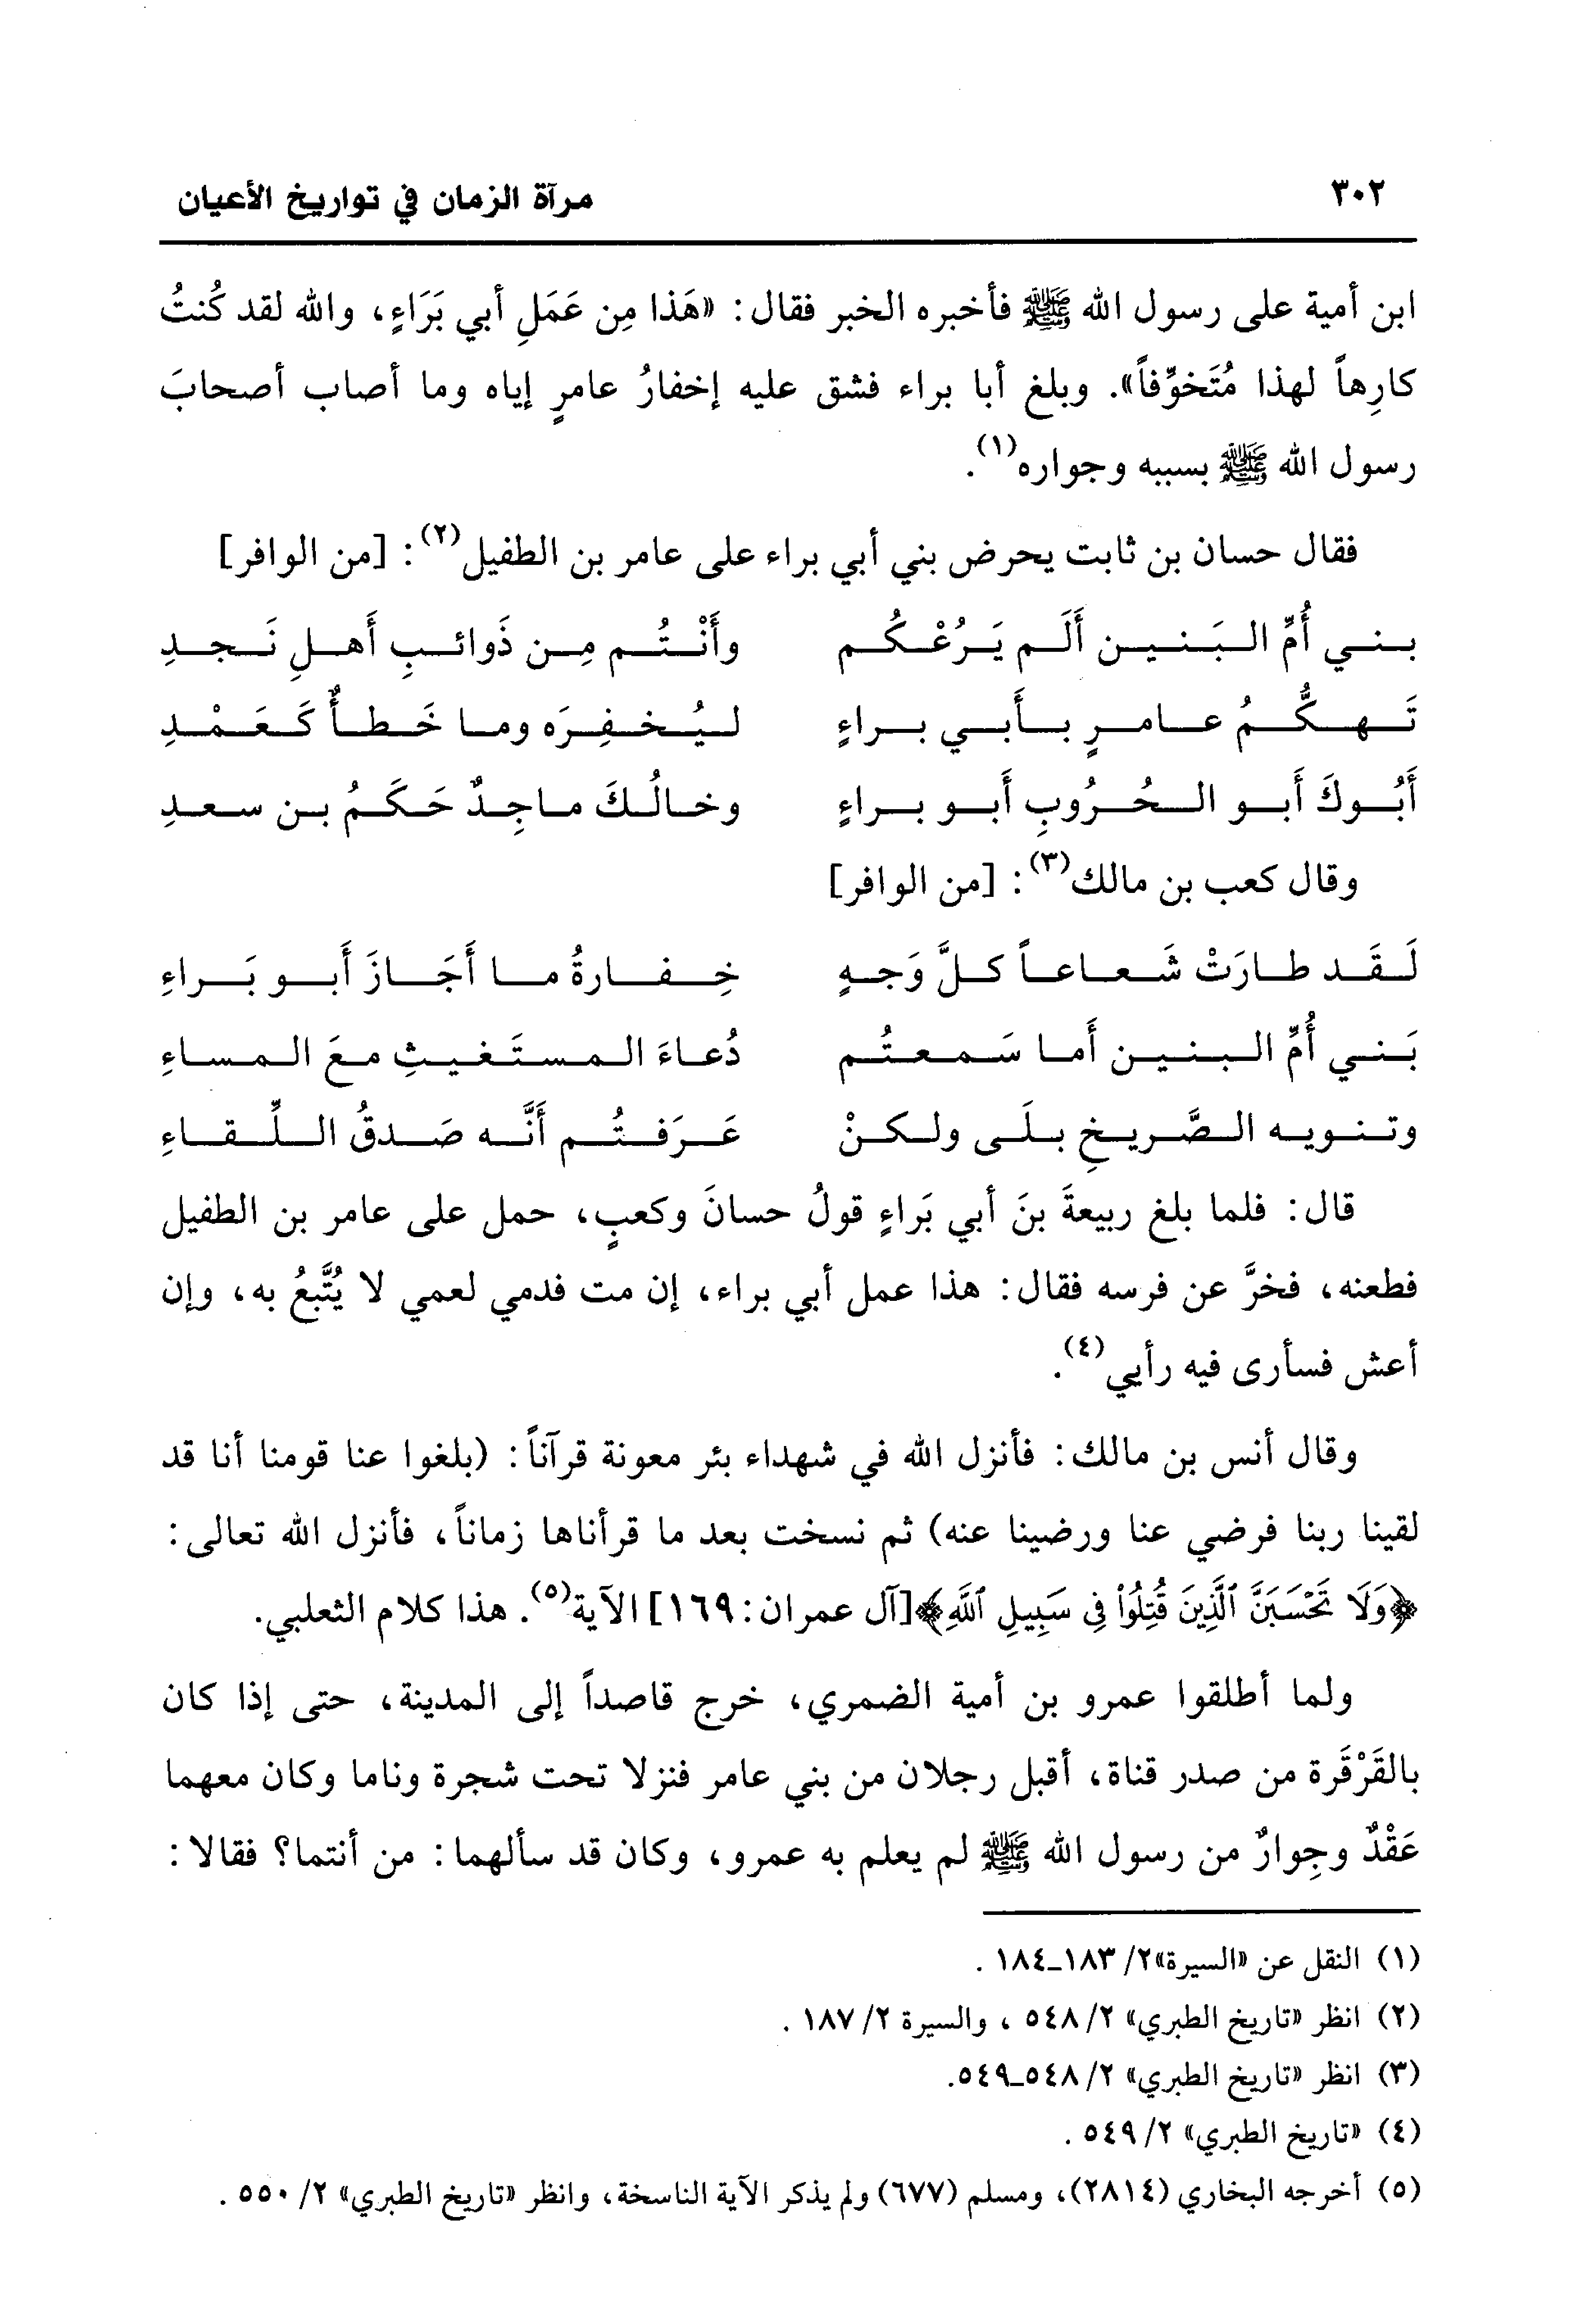 ٣٠٢ مرآة الزمان في تواريخ الأعيان
ابن أمية على رسول الله ﷺ فأخبره الخبر فقال: «هَذا مِن عَمَلِ أبي بَرَاءٍ، والله لقد كُنتُ
كارِهاً لهذا مُتَخوِّفاً». وبلغ أبا براء فشق عليه إخفارُ عامرٍ إياه وما أصاب أصحابَ
رسول الله ﷺ بسببه وجواره(١).
فقال حسان بن ثابت يحرض بني أبي براء على عامر بن الطفيل(٢): [من الوافر]
بني أُمِّ البَنين أَلَم يَرُعْكُم وأَنْتُم مِن ذَوائبِ أَهلِ نَجدِ
تَهكُّمُ عامرٍ بأَبي براءٍ ليُخفِرَه وما خَطأٌ كَعَمْدِ
أَبُوكَ أَبو الحُرُوبِ أَبو براءٍ وخالُكَ ماجِدٌ حَكَمُ بن سعدِ
وقال كعب بن مالك(٣): [من الوافر]
لَقَد طارَتْ شَعاعاً كلَّ وَجهٍ خِفارةُ ما أَجَازَ أَبو بَراءِ
بَني أُمِّ البنين أَما سَمعتُم دُعاءَ المستَغيثِ معَ المساءِ
وتنويه الصَّريخِ بلَى ولكنْ عَرَفتُم أَنَّه صَدقُ اللِّقاءِ
قال: فلما بلغ ربيعةَ بنَ أبي بَراءٍ قولُ حسانَ وكعبٍ، حمل على عامر بن الطفيل
فطعنه، فخرَّ عن فرسه فقال: هذا عمل أبي براء، إن مت فدمي لعمي لا يُتَّبعُ به، وإن
أعش فسأرى فيه رأيي(٤).
وقال أنس بن مالك: فأنزل الله في شهداء بئر معونة قرآناً: (بلغوا عنا قومنا أنا قد
لقينا ربنا فرضي عنا ورضينا عنه) ثم نسخت بعد ما قرأناها زماناً، فأنزل الله تعالى:
﴿وَلَا تَحْسَبَنَّ ٱلَّذِينَ قُتِلُواْ فِى سَبِيلِ ٱللَّهِ﴾[آل عمران: ١٦٩] الآية(٥). هذا كلام الثعلبي.
ولما أطلقوا عمرو بن أمية الضمري، خرج قاصداً إلى المدينة، حتى إذا كان
بالقَرْقَرة من صدر قناة، أقبل رجلان من بني عامر فنزلا تحت شجرة وناما وكان معهما
عَقْدٌ وجِوارٌ من رسول الله ﷺ لم يعلم به عمرو، وكان قد سألهما: من أنتما؟ فقالا:
(١) النقل عن «السيرة»٢/ ١٨٣_١٨٤ .
(٢) انظر «تاريخ الطبري» ٢/ ٥٤٨ ، والسيرة ٢/ ١٨٧ .
(٣) انظر «تاريخ الطبري» ٢/ ٥٤٨_٥٤٩.
(٤) «تاريخ الطبري» ٢/ ٥٤٩ .
(٥) أخرجه البخاري (٢٨١٤)، ومسلم (٦٧٧) ولم يذكر الآية الناسخة، وانظر «تاريخ الطبري» ٢/ ٥٥٠ .